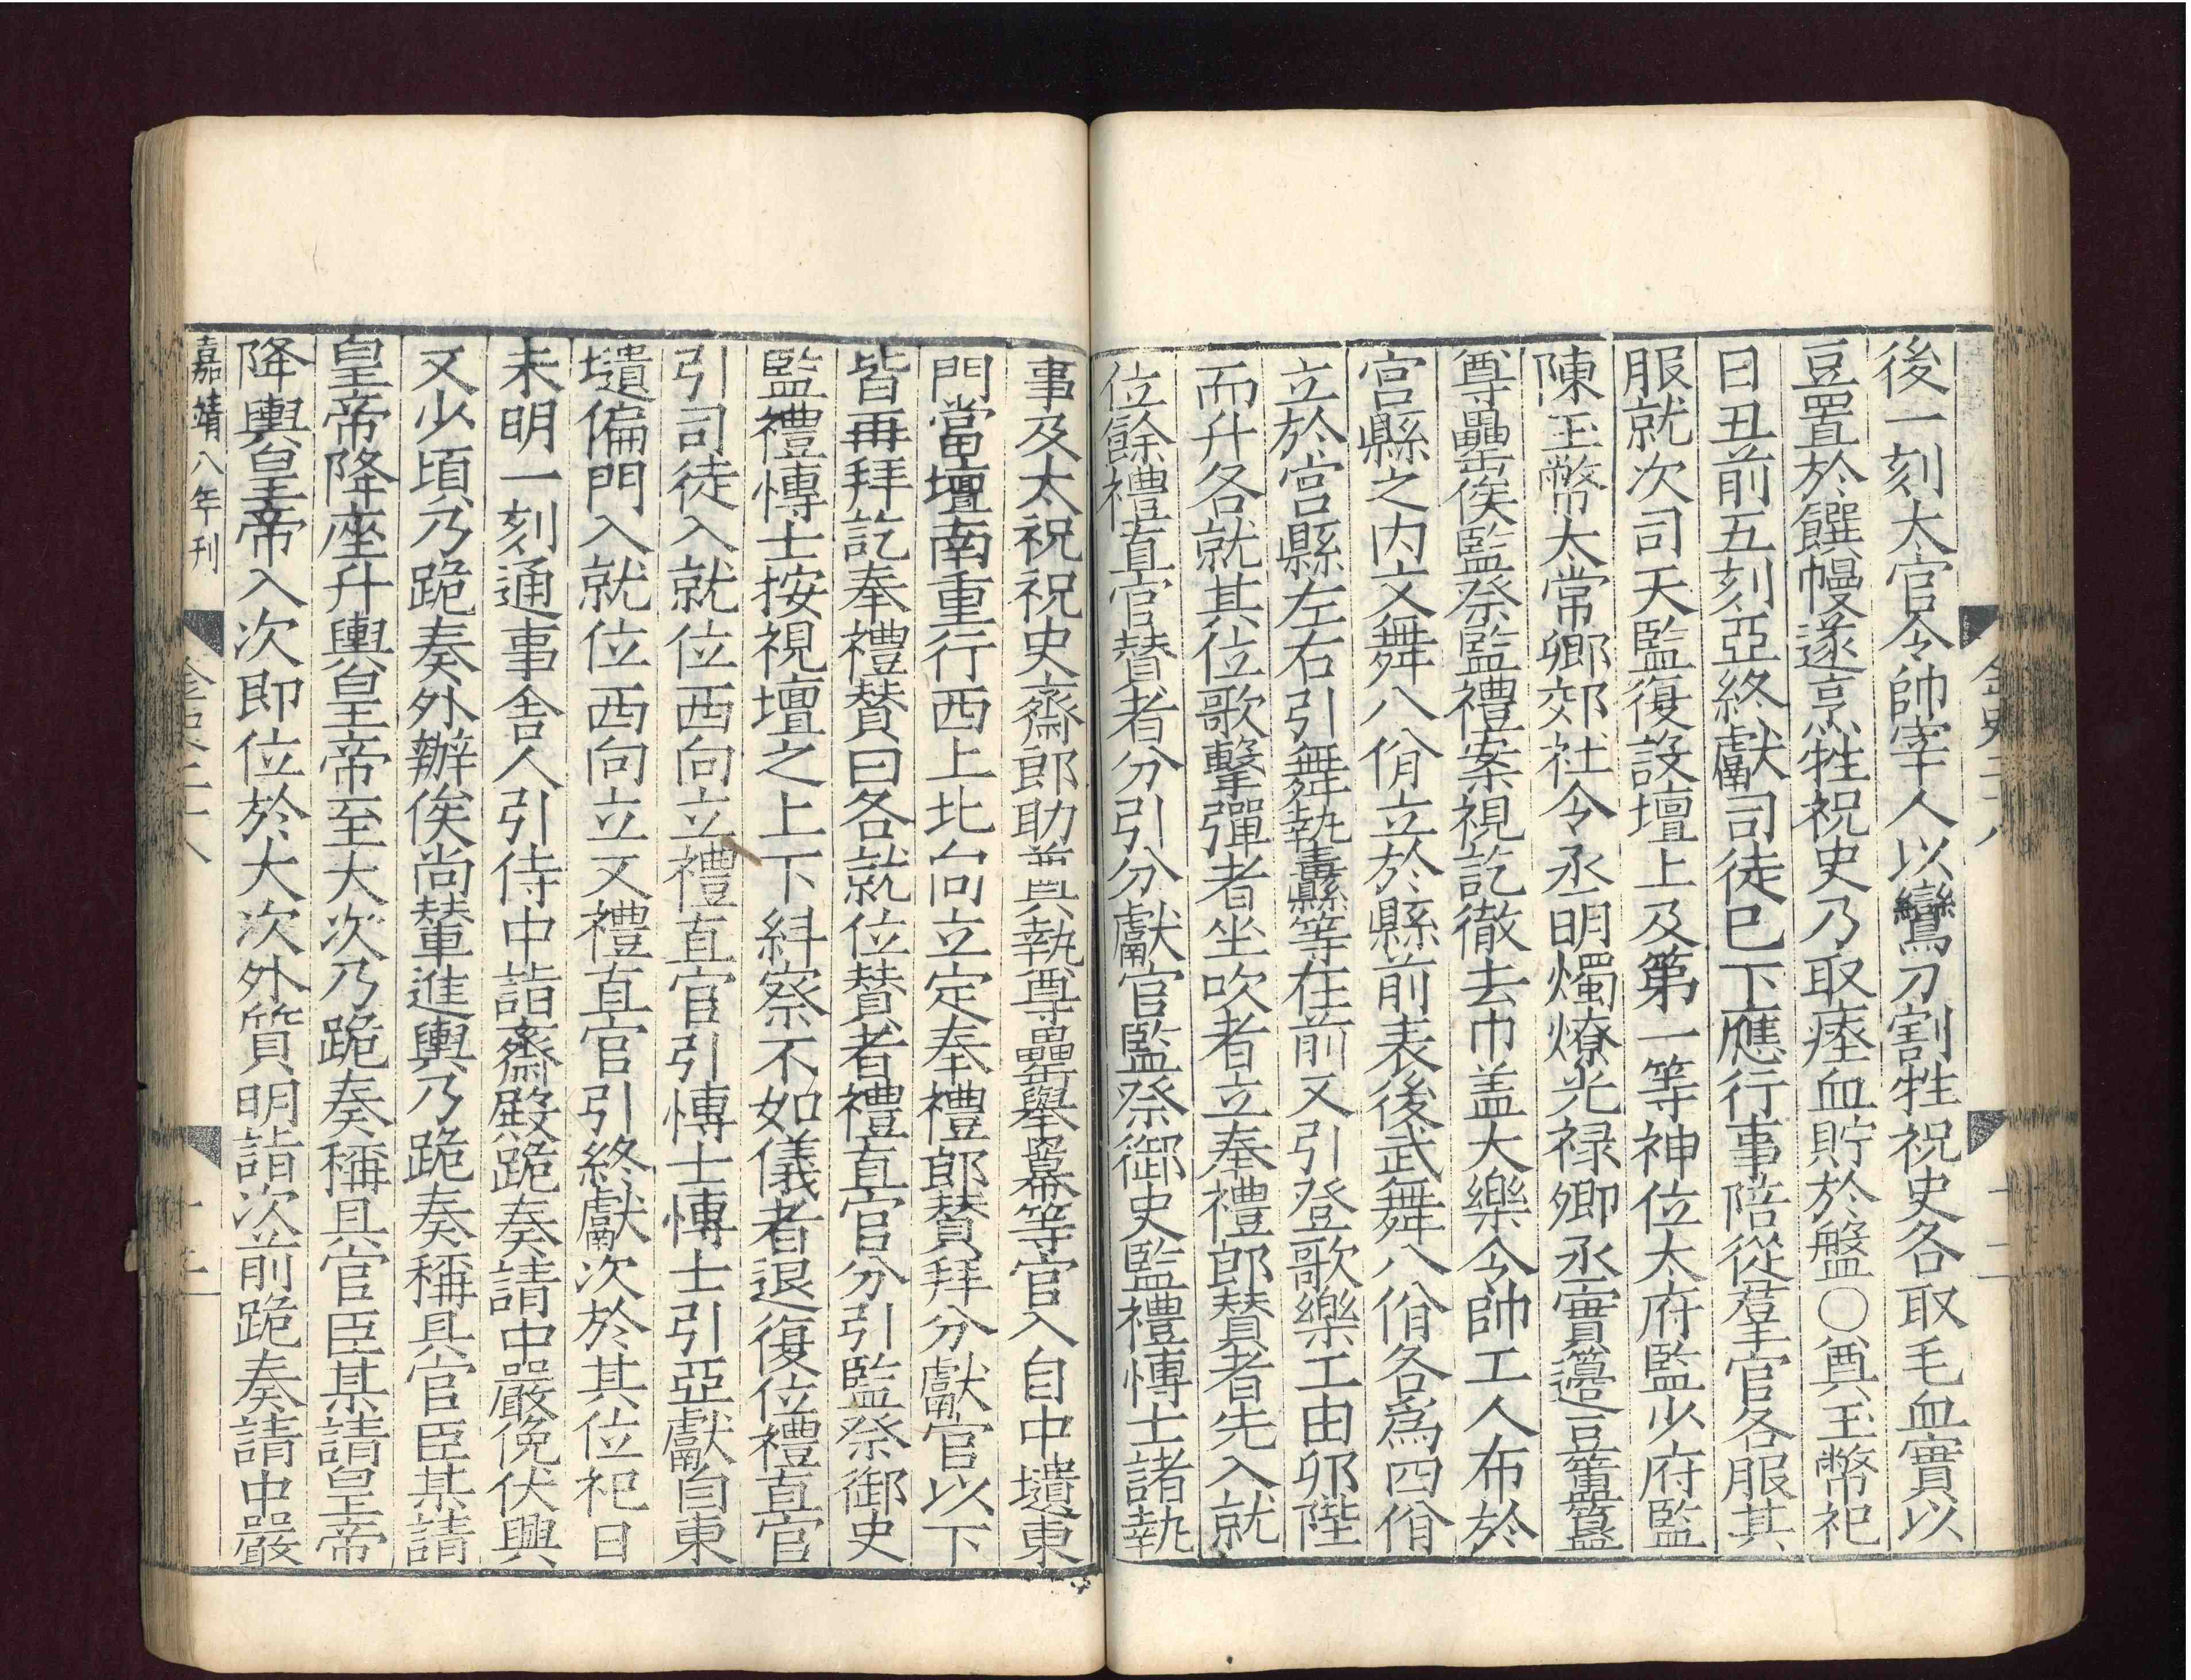 後一刻太官令帥宰人以鸞刀割牲祝史各取毛血實以
豆置於饌幔遂烹牲祝史乃取瘞血貯於盤○奠玉幣祀
日丑前五刻亞終獻司徒巳下應行事陪從羣官各服其
服就次司天監復設壇上及第一等神位太府監少府監
陳玉幣太常卿郊社令丞明燭燎光禄卿丞實籩豆簠簋
尊罍俟監祭監禮案視訖徹去巾盖大樂令帥工人布於
宫縣之内文舞八佾立於縣前表後武舞八佾各爲四佾
立於宫縣左右引舞執纛等在前又引登歌樂工由卯陛
而升各就其位歌擊彈者坐吹者立奉禮郎賛者先入就
位餘禮直官賛者分引分獻官監祭御史監禮愽士諸執
事及太祝祝史齋郎助奠執尊罍舉羃等官入自中壝東
門當壇南重行西上北向立定奉禮郎賛拜分獻官以下
皆再拜訖奉禮賛曰各就位賛者禮直官分引監祭御史
監禮愽士按視壇之上下糾察不如儀者退復位禮直官
引司徒入就位西向立禮直官引愽士愽士引亞獻自東
壝偏門入就位西向立又禮直官引終獻次於其位祀日
未明一刻通事舎人引侍中詣齋殿跪奏請中嚴俛伏興
又少頃乃跪奏外辦俟尚輦進輿乃跪奏稱具官臣某請
皇帝降座升輿皇帝至大次乃跪奏稱具官臣某請皇帝
降輿皇帝入次即位於大次外質明詣次前跪奏請中嚴
嘉靖八年刊
金史二十八
十二